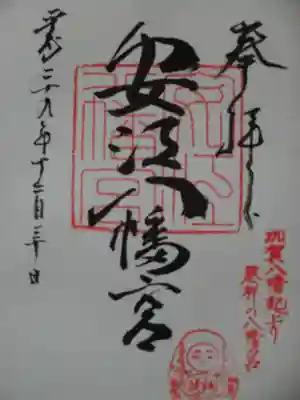 奉拝
安江八幡宮
平成二十九年十二月三十日
加賀八幡起上り
発祥の八幡宮